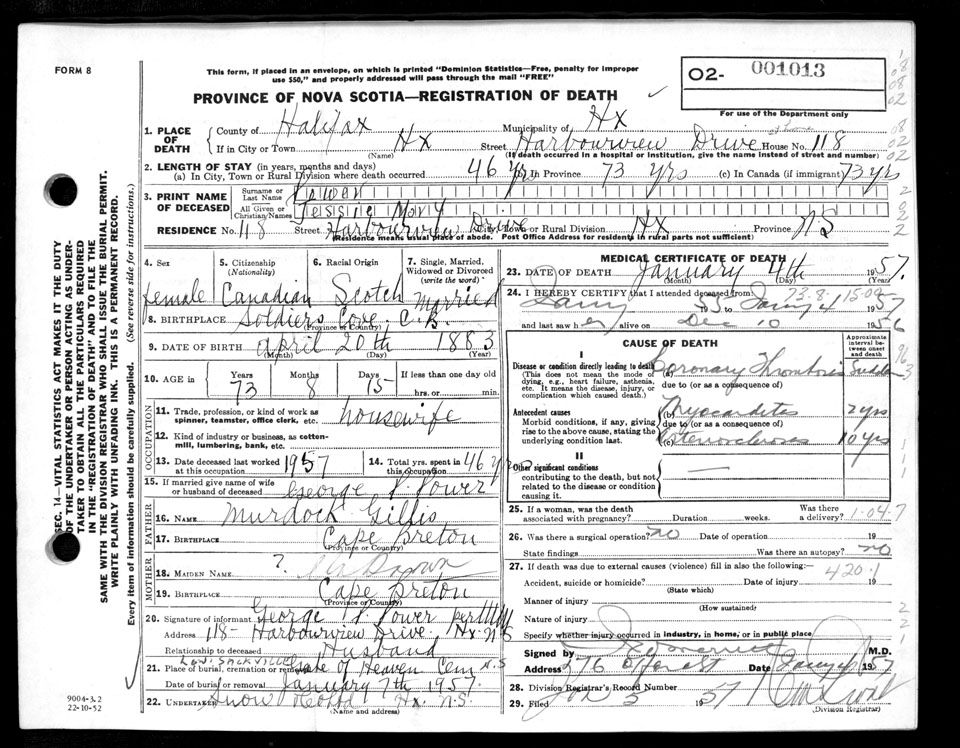 FORM 8
This form, if placed in an envelope, on which is printed "Dominion Statistics—Free, penalty for improper
use $50," and properly addressed will pass through the mail "FREE"
O2- 001013
For use of the Department only
PROVINCE OF NOVA SCOTIA—REGISTRATION OF DEATH
1. PLACE OF DEATH
County of Halifax Municipality of Hx
If in City or Town Hx Street Harbourview Drive House No. 118
(Name) (If death occurred in a hospital or institution, give the name instead of street and number)
2. LENGTH OF STAY (in years, months and days)
(a) In City, Town or Rural Division where death occurred 46 yrs (b) In Province 73 yrs (c) In Canada (if immigrant) 73 yrs
3. PRINT NAME OF DECEASED
Surname or Last Name Power
All Given or Christian Names Jessie Mary
RESIDENCE No. 118 Street Harbourview Drive City, Town or Rural Division Hx Province NS
(Residence means usual place of abode. Post Office Address for residents in rural parts not sufficient)
4. Sex female
5. Citizenship (Nationality) Canadian
6. Racial Origin Scotch
7. Single, Married, Widowed or Divorced (write the word) Married
8. BIRTHPLACE Soldiers Cove, C.B.
(Province or Country)
9. DATE OF BIRTH April 20th 1883
(Month) (Day) (Year)
10. AGE in Years 73 Months 8 Days 15 If less than one day old
hrs. or min.
OCCUPATION
11. Trade, profession, or kind of work as spinner, teamster, office clerk, etc. housewife
12. Kind of industry or business, as cotton-mill, lumbering, bank, etc.
13. Date deceased last worked at this occupation 1957
14. Total yrs. spent in this occupation 46 yrs
15. If married give name of wife or husband of deceased George P. Power
FATHER
16. NAME Murdock Gillis
17. BIRTHPLACE Cape Breton
(Province or Country)
MOTHER
18. MAIDEN NAME ?
19. BIRTHPLACE Cape Breton
(Province or Country)
20. Signature of informant George P. Power per
Address 118- Harbourview Drive. Hx. N.S
Relationship to deceased Husband
21. Place of burial, cremation or removal Low. Sackville Gate of Heaven Cem N.S
Date of burial or removal January 7th 1957
22. UNDERTAKER Snow Hx. N.S.
(Name and address)
MEDICAL CERTIFICATE OF DEATH
23. DATE OF DEATH January 4th 1957.
(Month) (Day)
73-8-15-09
24. I HEREBY CERTIFY that I attended deceased from
to Jany 4 1957
and last saw her alive on Dec 10 1956
CAUSE OF DEATH
Approximate interval between onset and death
I
Disease or condition directly leading to death (a) Coronary Thrombosis Sudden
(This does not mean the mode of dying, e.g., heart failure, asthenia, etc. It means the disease, injury, or complication which caused death.)
due to (or as a consequence of)
Antecedent causes (b) Myocarditis 2 yrs
Morbid conditions, if any, giving rise to the above cause, stating the underlying condition last.
due to (or as a consequence of)
(c) Arteriosclerosis 10 yrs
II
Other significant conditions
contributing to the death, but not related to the disease or condition causing it.
25. If a woman, was the death associated with pregnancy? Duration weeks. Was there a delivery? 1-04-7
26. Was there a surgical operation? no Date of operation 19
State findings Was there an autopsy? no
27. If death was due to external causes (violence) fill in also the following:-
420.1
Accident, suicide or homicide? Date of injury 19
(State which)
Manner of injury
(How sustained)
Nature of injury
Specify whether injury occurred in industry, in home, or in public place
Signed by M.D.
Address 276 Date 1957
28. Division Registrar's Record Number
29. Filed Jan 5 1957
(Division Registrar)
SEC. 14—VITAL STATISTICS ACT MAKES IT THE DUTY
OF THE UNDERTAKER OR PERSON ACTING AS UNDERTAKER TO OBTAIN ALL THE PARTICULARS REQUIRED
IN THE "REGISTRATION OF DEATH" AND TO FILE THE
SAME WITH THE DIVISION REGISTRAR WHO SHALL ISSUE THE BURIAL PERMIT.
WRITE PLAINLY WITH UNFADING INK. THIS IS A PERMANENT RECORD.
Every item of information should be carefully supplied. (See reverse side for instructions.)
9004-3.2
22-10-52